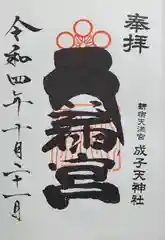 奉拝
新宿天満宮
成子天神社
天満宮
令和四年十月二十一日